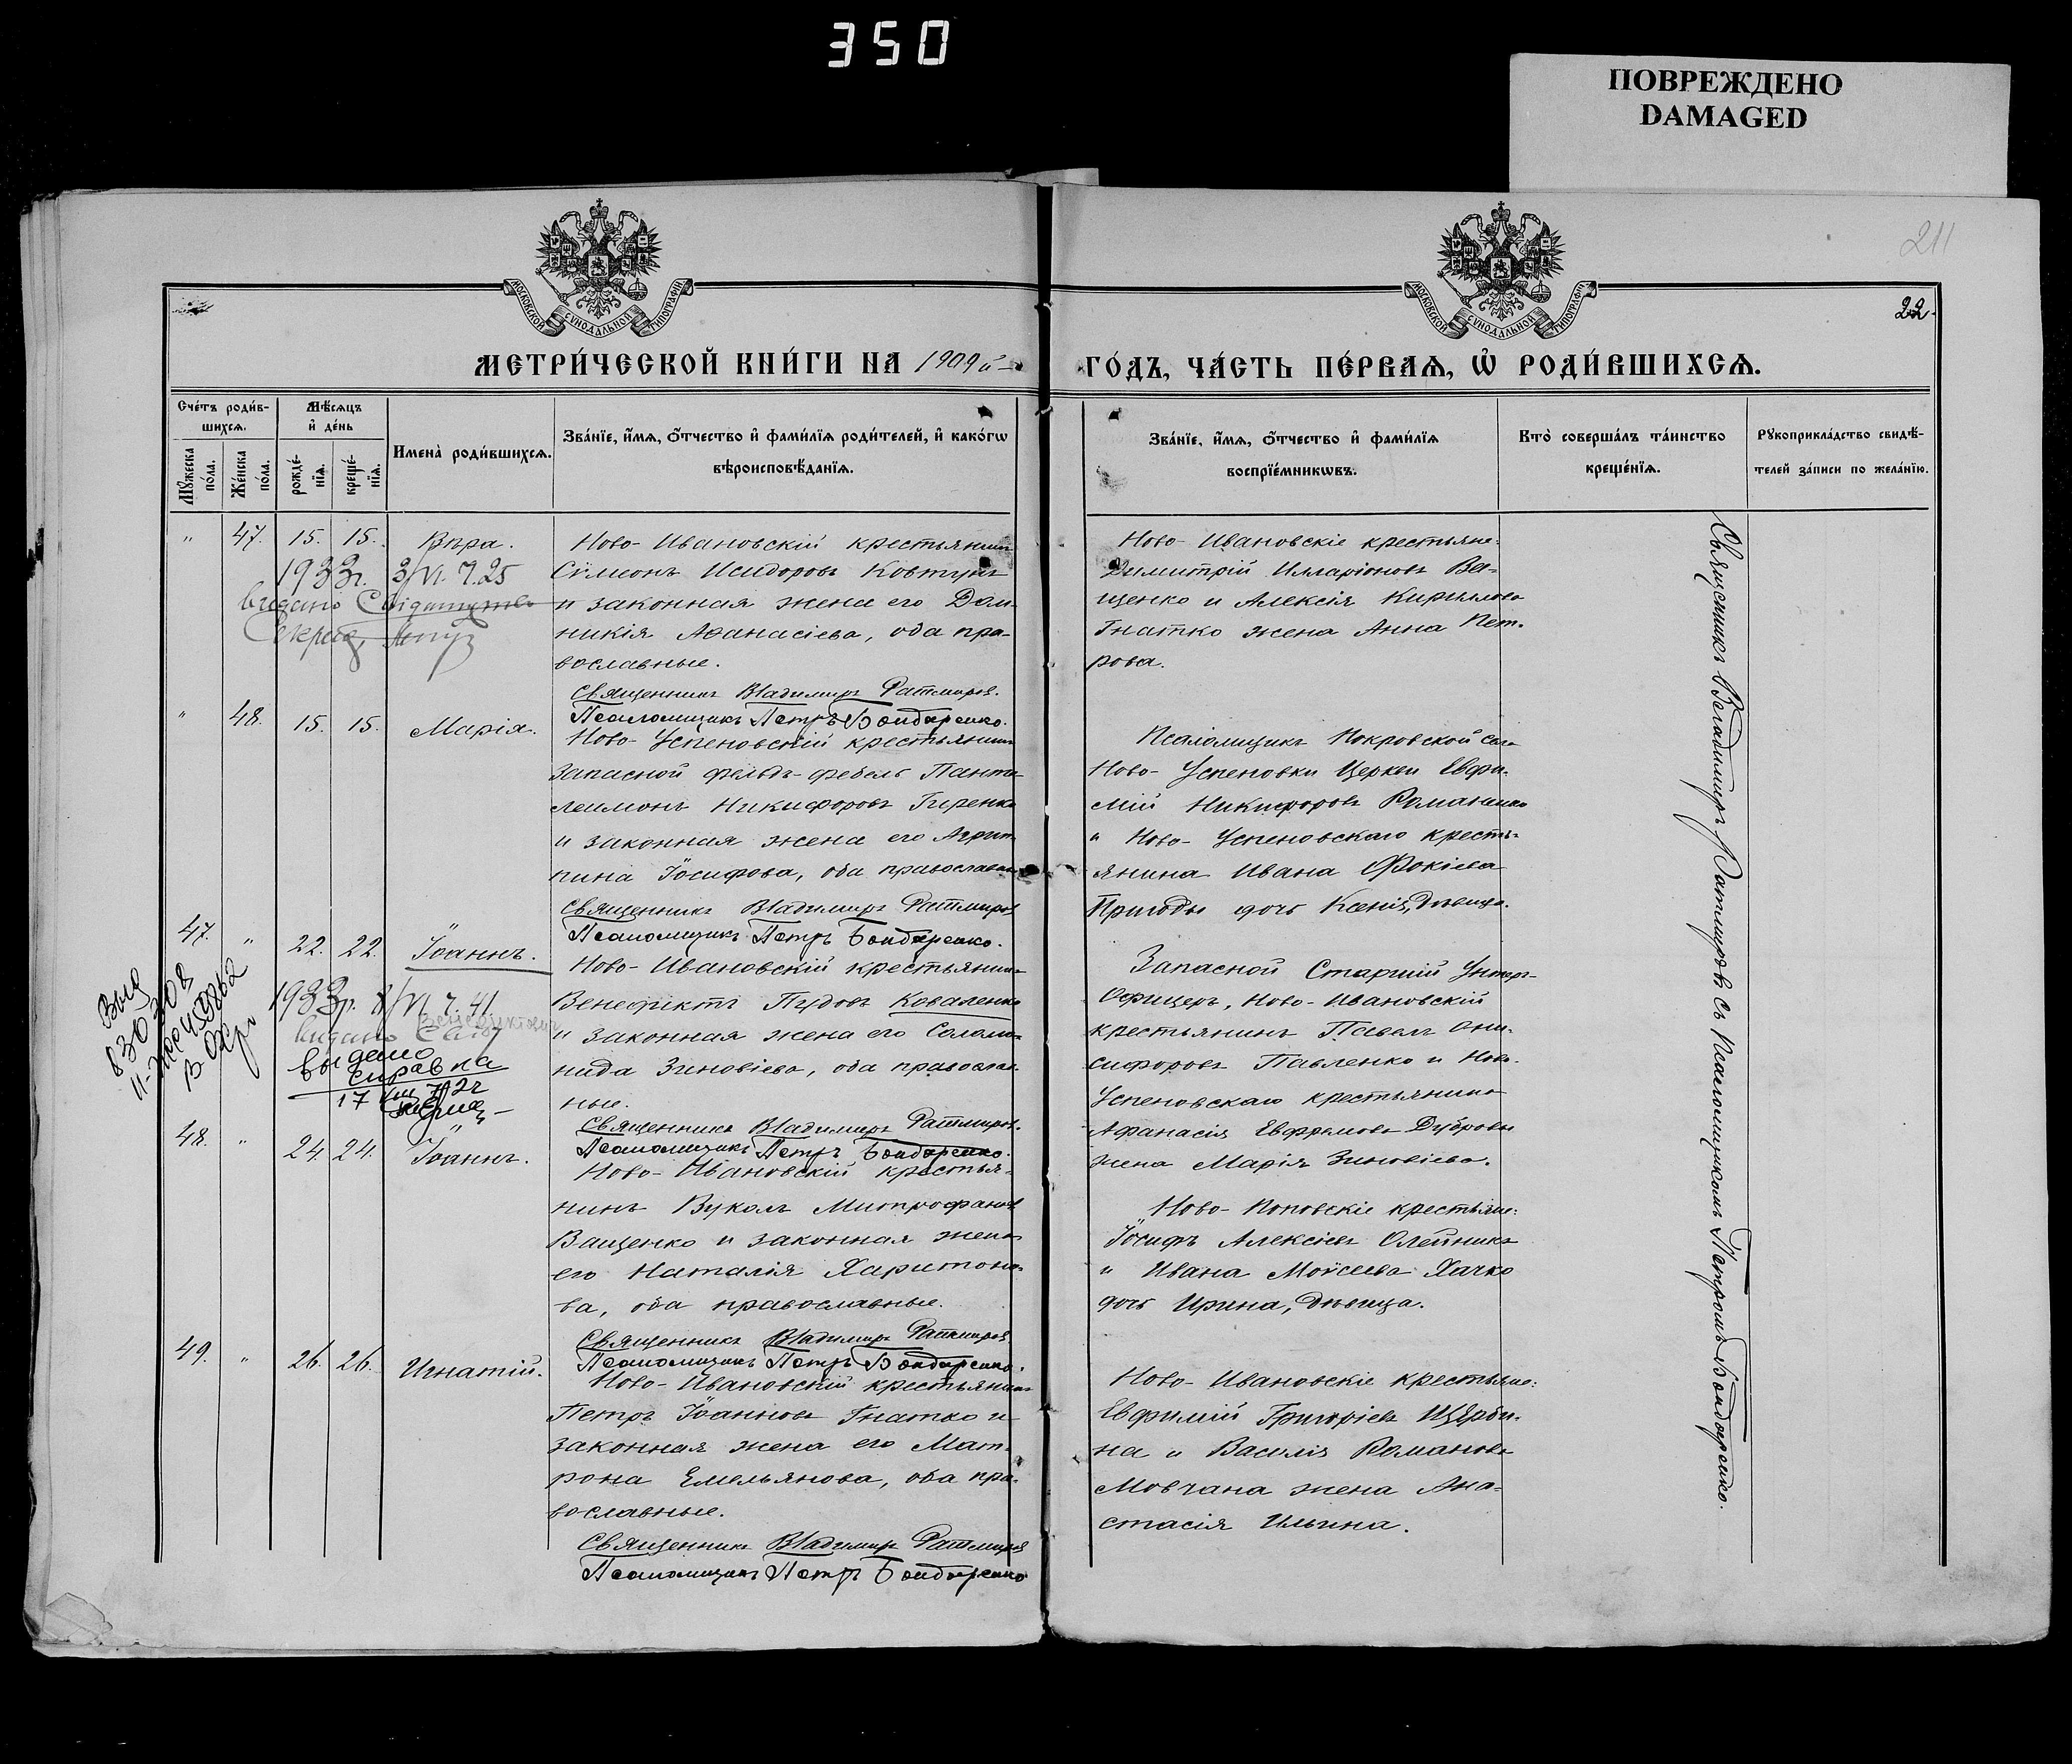 350
ПОВРЕЖДЕНО
DAMAGED
211
22.
МОСКОВСКОЙ СѴНОДАЛЬНОЙ ТИПОГРАФІИ
МОСКОВСКОЙ СѴНОДАЛЬНОЙ ТИПОГРАФІИ
МЕТРИ́ЧЕСКОЙ КНИ́ГИ НА 1909й
ГО́ДЪ, ЧА́СТЬ ПЕ́РВАѦ, Ѽ РОДИ́ВШИХСѦ.
Сче́тъ роди́в-
шихсѧ.
Мѣ́сѧцъ
и҆ де́нь
Мꙋ́жеска по́ла.
Же́нска по́ла.
рожде́-
нїѧ.
креще́-
нїѧ.
Имена̀ роди́вшихсѧ.
Зва́нїе, и҆́мѧ, о҆́тчество и҆ фами́лїѧ роди́телей, и҆ како́гѡ
вѣроисповѣ́данїѧ.
Зва́нїе, и҆́мѧ, о҆́тчество и҆ фами́лїѧ
воспрїе́мникѡвъ.
Кто̀ соверша́лъ та́инство
креще́нїѧ.
Рꙋкоприкла́дство свидѣ́-
телей за́писи по жела́нїю.
" 47. 15. 15. Вѣра.
1933г. 3/VI. 7.25
видано
Ново-Ивановскій крестьянинъ
Сѵмеонъ Исидоровъ Ковтунъ
и законная жена его Дом-
никія Аѳанасіева, оба пра-
вославные.
Священникъ Владимиръ Ратмировъ.
Псаломщикъ Петръ Бондаренко.
Ново-Ивановскіе крестьяне:
Димитрій Илларіоновъ Ва-
щенко и Алексія Кириллова
Гнатко жена Анна Пет-
рова.
" 48. 15. 15. Марія.
Ново-Успеновскій крестьянинъ
запасной фельдъ-фебель Панте-
леимонъ Никифоровъ Гиренко
и законная жена его Агрип-
пина Іосифова, оба православн
Священникъ Владимиръ Ратмировъ
Псаломщикъ Петръ Бондаренко.
Псаломщикъ Покровской села
Ново-Успеновки Церкви Евфи-
мій Никифоровъ Романенко
и Ново-Успеновскаго кресть-
янина Ивана Фокіева
Пригоды дочь Ксенія, дѣвица.
47. " 22. 22. Іоаннъ.
1933р. 8/VI. 7. 41
видано
Венедиктович
выдано
справка
17
Ново-Ивановскій крестьянинъ
Венефиктъ Пудовъ Коваленко
и законная жена его Соломо-
нида Зиновіева, оба православ-
ные.
Священникъ Владимиръ Ратмировъ.
Псаломщикъ Петръ Бондаренко.
Запасной Старшій Унтеръ-
Офицеръ, Ново-Ивановскій
крестьянинъ Павелъ Они-
сифоровъ Павленко и Ново-
Успеновскаго крестьянина
Афанасія Евфремова Дубровы
жена Марія Зиновіева.
48. " 24. 24. Іоаннъ.
Ново-Ивановскій крестья-
нинъ Вуколъ Митрофановъ
Ващенко и законная жена
его Наталія Харитоно-
ва, оба православные.
Священникъ Владимиръ Ратмировъ
Псаломщикъ Петръ Бондаренко.
Ново-Поповскіе крестьяне:
Іосифъ Алексіевъ Олейникъ
и Ивана Моѵсеева Хачко
дочь Ирина, дѣвица.
49. " 26. 26. Игнатій.
Ново-Ивановскій крестьянинъ
Петръ Іоанновъ Гнатко и
законная жена его Мат-
рона Емельянова, оба пра-
вославные.
Священникъ Владимиръ Ратмировъ
Псаломщикъ Петръ Бондаренко
Ново-Ивановскіе крестьяне:
Евфимій Григоріевъ Щерби-
на и Василія Романова
Мовчана жена Ана-
стасія Ильина.
Священникъ Владимиръ Ратмировъ съ Псаломщикомъ Петромъ Бондаренко.